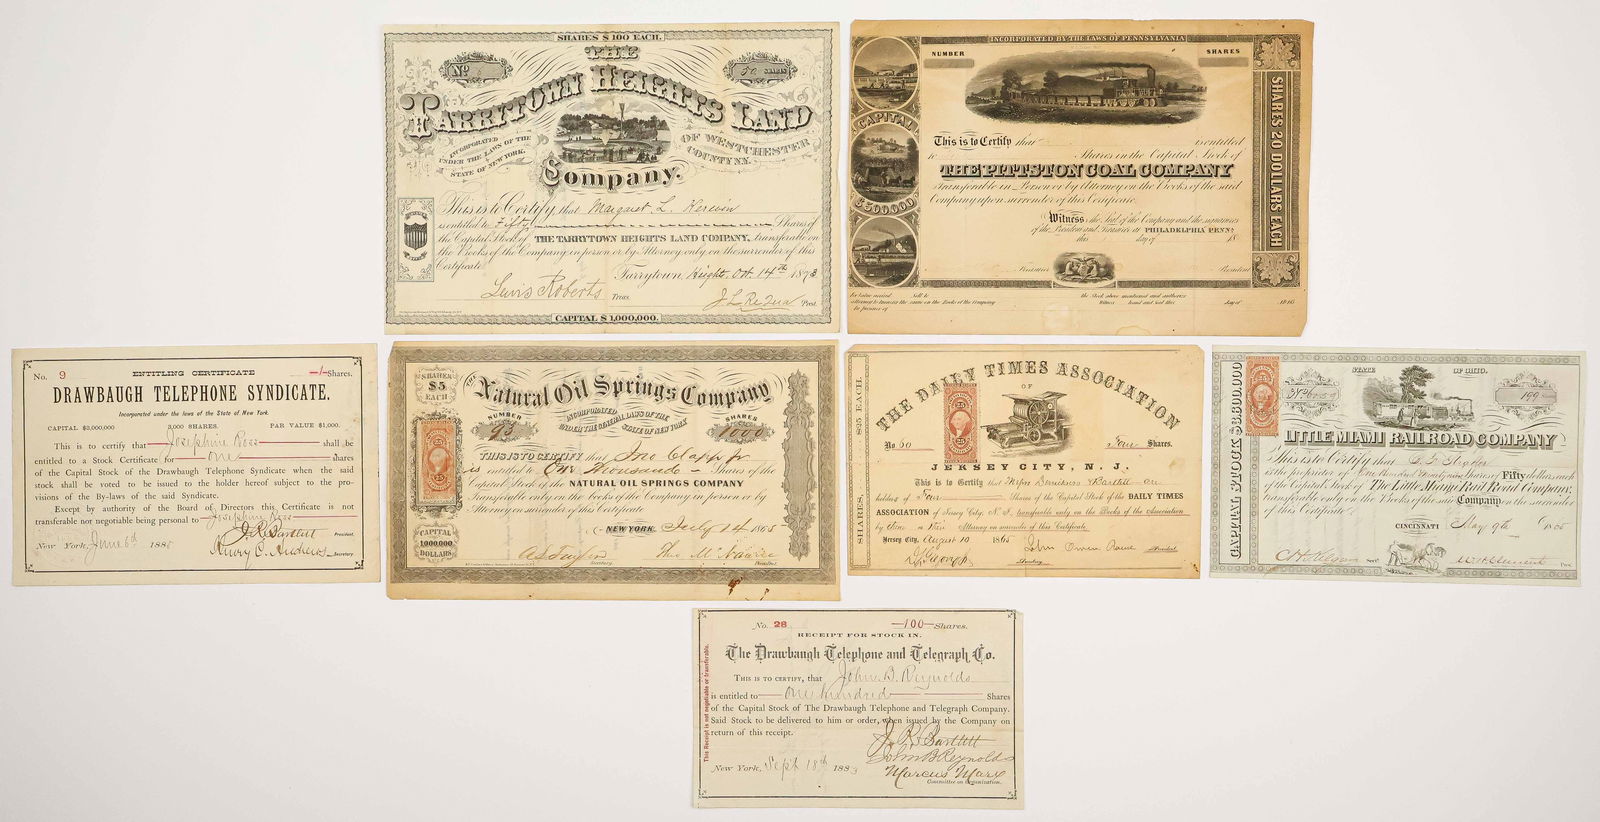 SHARES $ 100 EACH.
THE
TARRYTOWN HEIGHTS LAND
Company.
INCORPORATED
UNDER THE LAWS OF THE
STATE OF NEW YORK.
OF WESTCHESTER
COUNTY N.Y.
No
50 SHARES
This is to Certify that Margaret L. Kerwin
is entitled to Fifty Shares of
the Capital Stock of THE TARRYTOWN HEIGHTS LAND COMPANY, transferable on
the Books of the Company in person or by Attorney only on the surrender of this
Certificate.
Tarrytown Heights, Oct. 14th 1873
Lewis Roberts Treas.
J L Requa Prest.
CAPITAL $ 1,000,000.
INCORPORATED BY THE LAWS OF PENNSYLVANIA
NUMBER
SHARES
CAPITAL
$500000
SHARES 20 DOLLARS EACH
This is to Certify that is entitled
to Shares in the Capital Stock of
THE PITTSTON COAL COMPANY
Transferable in Person or by Attorney on the Books of the said
Company upon surrender of this Certificate.
Witness the Seal of the Company and the signatures
of the President and Treasurer at PHILADELPHIA PENNA
this day of 18
Treasurer
President
For value received Sell to the Stock above mentioned and authorize
Attorney to transfer the same on the Books of the Company Witness hand and seal this day of
In presence of
No. 9
ENTITLING CERTIFICATE
-1- Shares.
DRAWBAUGH TELEPHONE SYNDICATE.
Incorporated under the laws of the State of New York.
CAPITAL $3,000,000 3,000 SHARES. PAR VALUE $1,000.
This is to certify that Josephine Ross shall be
entitled to a Stock Certificate for one shares
of the Capital Stock of the Drawbaugh Telephone Syndicate when the said
stock shall be voted to be issued to the holder hereof subject to the pro-
visions of the By-laws of the said Syndicate.
Except by authority of the Board of Directors this Certificate is not
transferable not negotiable being personal to Josephine Ross
J. R. Bartlett President.
New York, June 6th 188
Henry C. Andrews Secretary
SHARES
$5
EACH
THE Natural Oil Springs Company
NUMBER
93
INCORPORATED
UNDER THE GENERAL LAWS OF THE
STATE OF NEW YORK
SHARES
1000
THIS IS TO CERTIFY that Jno Clapp Jr
is entitled to One Thousand Shares of the
Capital Stock of the NATURAL OIL SPRINGS COMPANY
Transferable only on the books of the Company in person or by
Attorney on surrender of this Certificate
NEW YORK July 14 1865
CAPITAL
1000000
DOLLARS
A S Taylor Secretary
President
THE DAILY TIMES ASSOCIATION
OF
SHARES, $25 EACH.
No 60
Four Shares.
JERSEY CITY, N. J.
This is to Certify that Messrs Davidson & Bartlett are
holders of Four Shares of the Capital Stock of the DAILY TIMES
ASSOCIATION of Jersey City, N. J., transferable only on the Books of the Association
by them or their Attorney on surrender of this Certificate.
Jersey City, August 10 1865
John Owen Rouse President
Secretary
CAPITAL STOCK $3,600,000
STATE OF OHIO.
199 Shares
LITTLE MIAMI RAILROAD COMPANY
This is to Certify that
is the proprietor of One Hundred Ninety nine Shares of Fifty dollars each
of the Capital Stock of The Little Miami Rail Road Company,
transferable only on the Books of the said Company on the surrender
of this Certificate.
CINCINNATI May 9th 1865
Secy.
W H Clement Pres.
No. 28
-100- Shares.
RECEIPT FOR STOCK IN.
The Drawbaugh Telephone and Telegraph Co.
This Receipt is not negotiable or transferable.
THIS IS TO CERTIFY, that John B. Reynolds
is entitled to one hundred Shares
of the Capital Stock of The Drawbaugh Telephone and Telegraph Company.
Said Stock to be delivered to him or order, when issued by the Company on
return of this receipt.
J. R. Bartlett
John B Reynolds
New York, Sept 18th 1883
Marcus Marx
Committee on Organization.